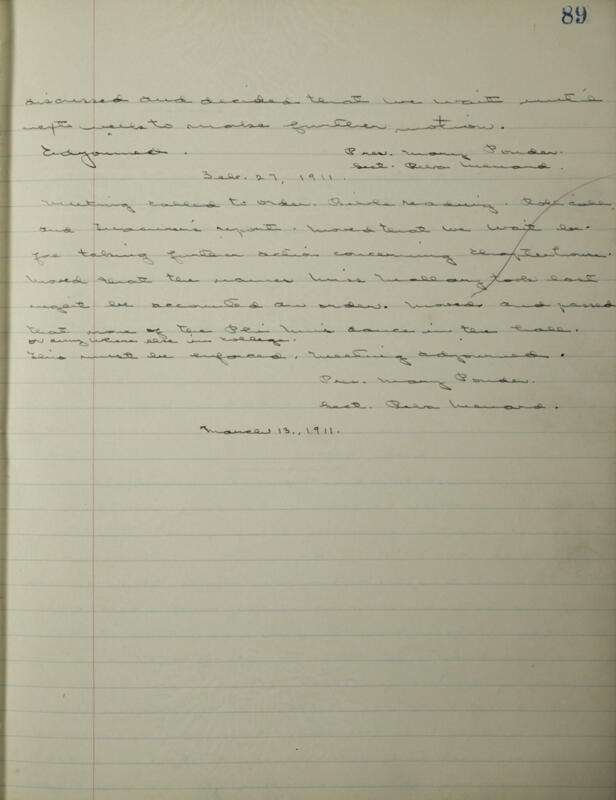 89
discussed and decided that we wait until
next week to make further motion.
Adjourned. Pres. Mary Ponder.
Sect. Reba Menard.
Feb. 27, 1911.
Meeting called to order. Bible reading. Roll call
and Treasurer's report. Moved that we wait be-
fore taking further action concerning Chapter house.
Moved that the names Miss Mallary took last
night be accounted an order. Moved and passed
that none of the Phi Mu's dance in the hall.
or any where else in college.
This must be enforced. Meeting adjourned.
Pres. Mary Ponder.
Sect. Reba Menard.
March 13, 1911.